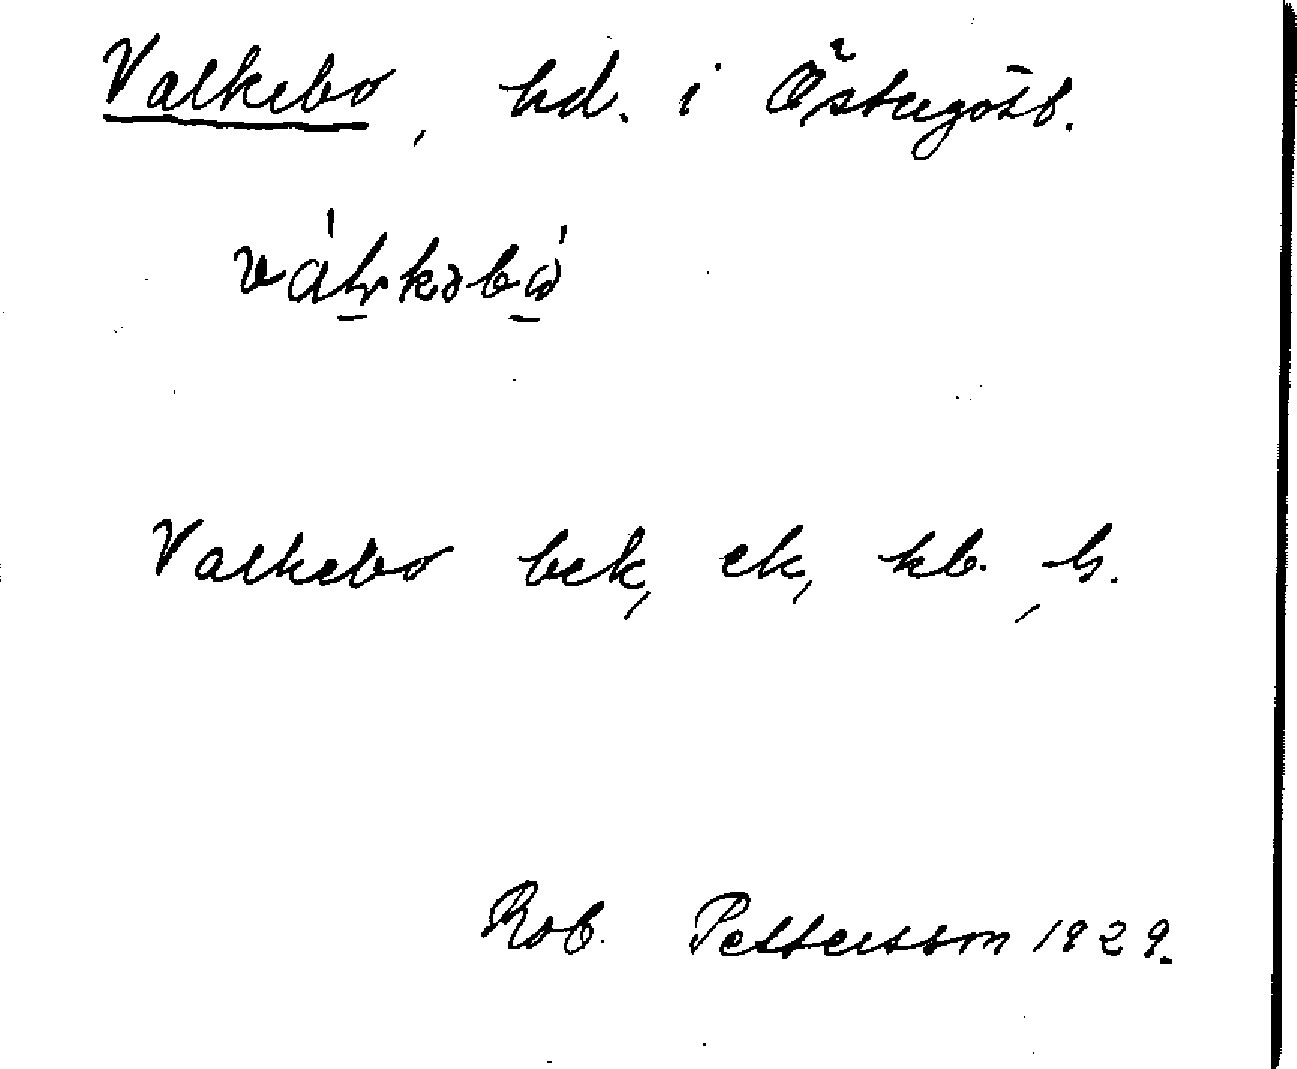 Valkebo, hd. i Östergötl.
Valkebo bek, ek, kb., h.
Rob. Pettersson 1929.